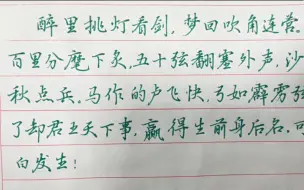 醉里挑灯看剑,梦回吹角连营。
百里分麾下炙,五十弦翻塞外声,沙
秋点兵。马作的卢飞快,弓如霹雳弦
了却君王天下事,赢得生前身后名。可
白发生!